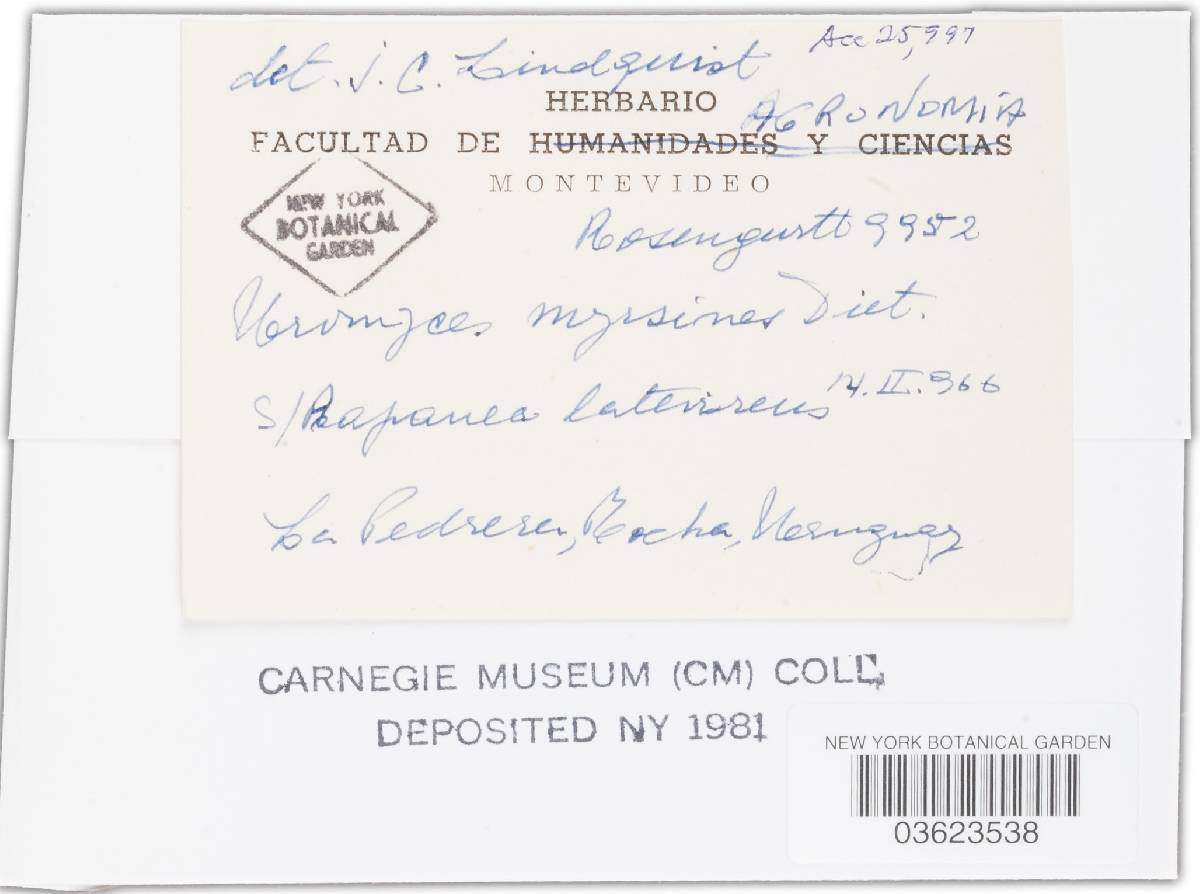 Acc 25,997
det. J. C. Lindquist
HERBARIO
AGRONOMIA
FACULTAD DE HUMANIDADES Y CIENCIAS
MONTEVIDEO
NEW YORK
BOTANICAL
GARDEN
Rosengurtt 9952
Uromyces myrsines Diet.
S/Rapanea latevirens 14.II.966
La Pedrera, Rocha, Uruguay
CARNEGIE MUSEUM (CM) COLL.
DEPOSITED NY 1981
NEW YORK BOTANICAL GARDEN
03623538